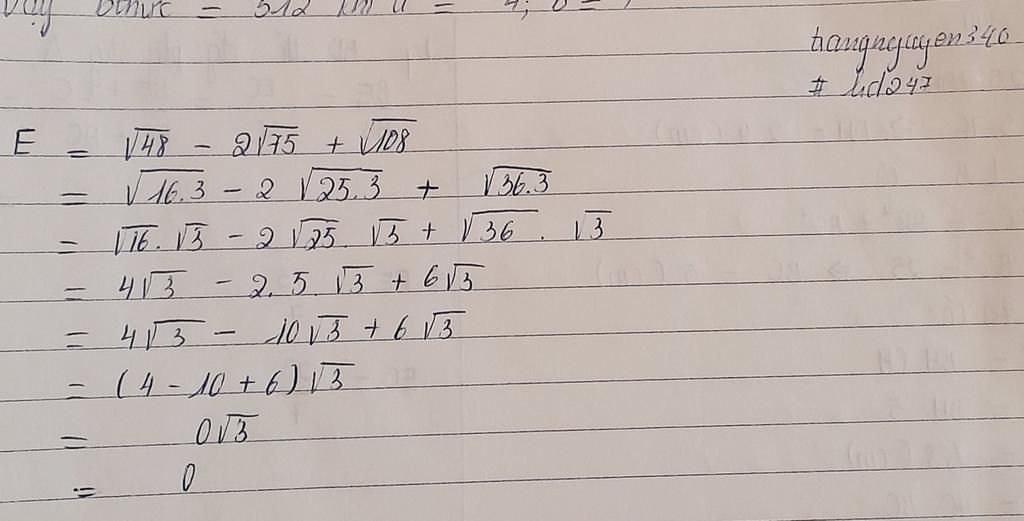 Vậy bthức = 512 khi a = 4; b =
trangnguyen340
# hd247
E = √48 - 2√75 + √108
= √16.3 - 2 √25.3 + √36.3
= √16. √3 - 2 √25. √3 + √36 . √3
= 4√3 - 2. 5. √3 + 6√3
= 4√3 - 10√3 + 6√3
= (4 - 10 + 6)√3
= 0√3
= 0